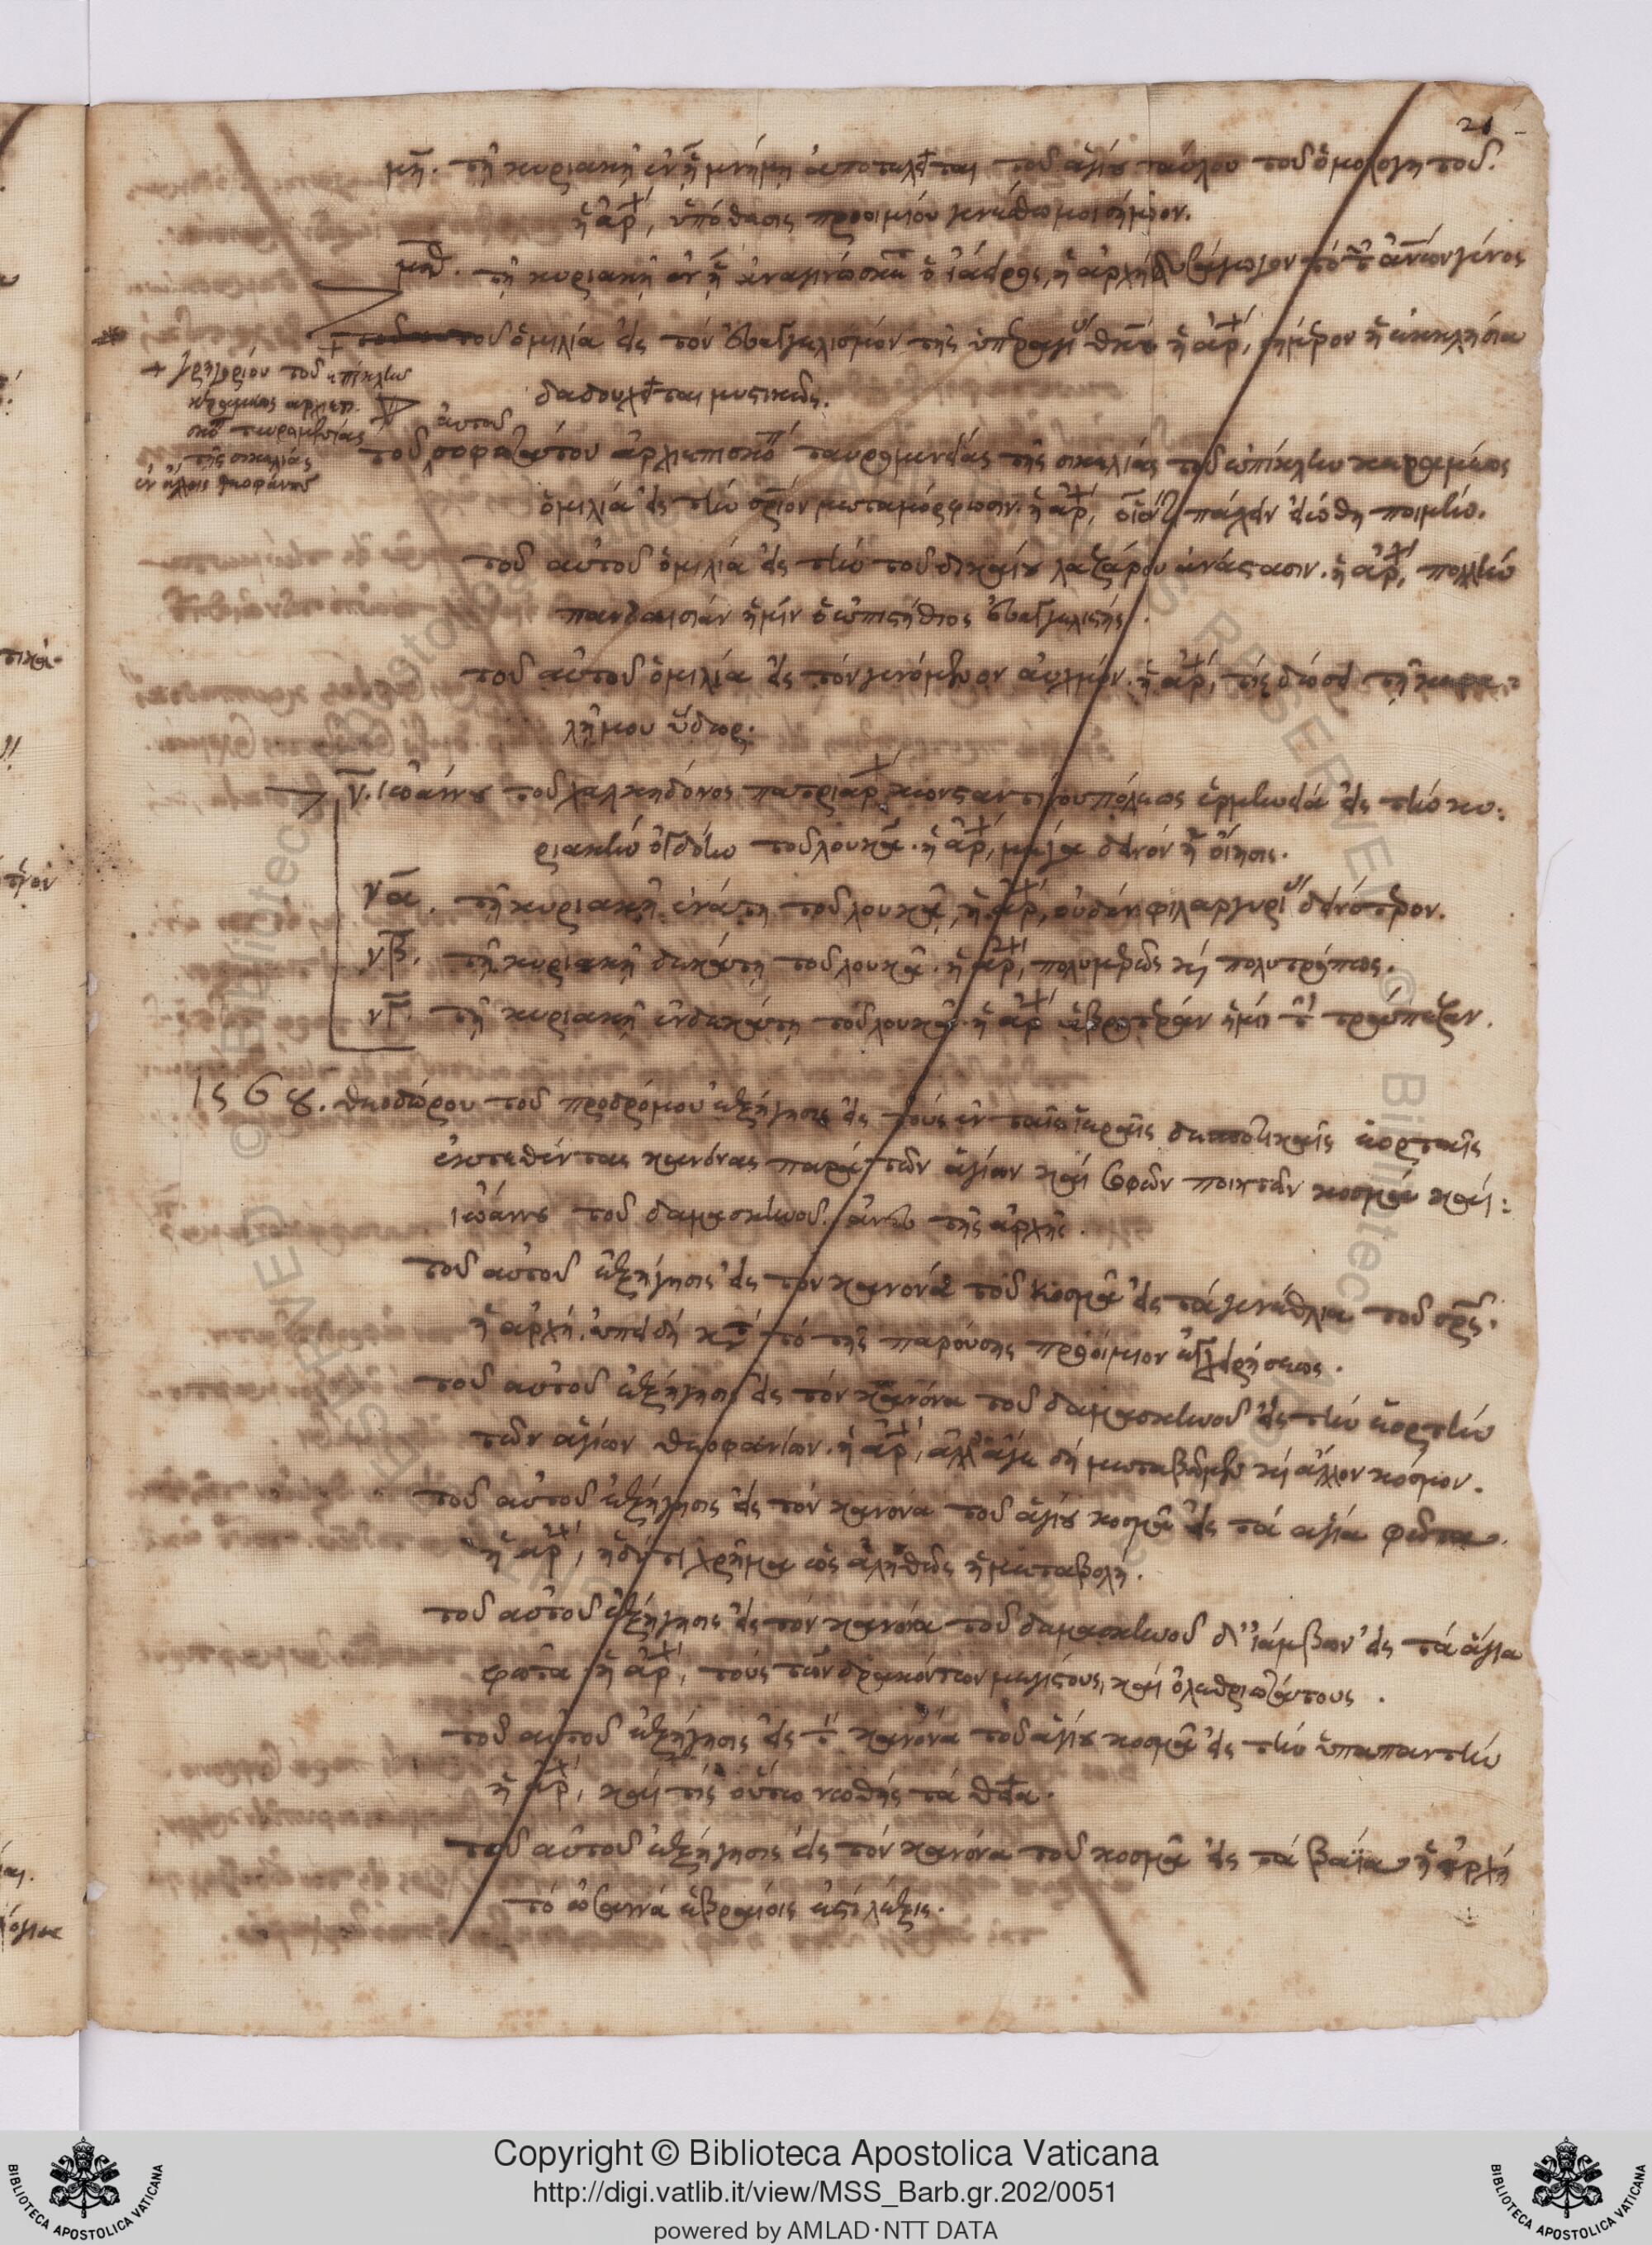 21
μη̄. τῇ κυριακῇ ἐν ᾗ μνήμη ἀποτελεῖται τοῦ ἁγίου παύλου τοῦ ὁμολογητοῦ.
ἡ ἀρχ, ὑπόθεσις προοιμίου γενέσθω μοι σήμερον.
μθ̄. τῇ κυριακῇ ἐν ᾗ ἀναγινώσκεται ὁ ἰάειρος, ἡ ἀρχή,
τοῦ ὁμιλία εἰς τὸν εὐαγγελισμὸν τῆς ὑπεραγί θκου ἡ ἀρχ, σήμερον ἡ ἐκκλησία
δαδουχεῖται μυστικῶς.
+ γρηγορίου τοῦ ἐπίκλην
κεραμέως αρχιεπι
σκο ταυρομενίας
τῆς σικελίας
ἐν ἄλλοις θεοφάνους
αὐτοῦ
τοῦ σοφωτάτου ἀρχιεπισκόπ ταυρομενείας τῆς σικελίας τοῦ ἐπίκλην κεραμέως
ὁμιλία εἰς τὴν σριον μεταμόρφωσιν. ἡ ἀρχ, πάλιν εἰώθη ποιμήν.
τοῦ αὐτοῦ ὁμιλία εἰς τὴν τοῦ δικαίου λαζάρου ἀνάστασιν. ἡ ἀρχ, πολλὴν
πανδαισίαν ἡμῖν ὁ ἐπιστήθιος εὐαγγελιστής.
τοῦ αὐτοῦ ὁμιλία εἰς τὸν γενόμενον αὐχμόν. ἡ ἀρχ, τίς δώσει τῇ κεφα
λῇ μου ὕδωρ.
ν̄. ἰωάννου τοῦ χαλκηδόνος πατριάρχ κωνσταντινουπόλεως ἑρμηνεία εἰς τὴν κυ:
ριακὴν ὀγδόην τοῦ λουκᾶ. ἡ ἀρχ, μέγα δεινὸν ἡ οἴησις.
νᾱ. τῇ κυριακῇ ἐνάτῃ τοῦ λουκᾶ, ἡ ἀρχ, οὐδὲν φιλαργυρί δεινότερον.
νβ̄. τῇ κυριακῇ δεκάτῃ τοῦ λουκᾶ. ἡ ἀρχ, πολυμερῶς καὶ πολυτρόπως.
νγ̄. τῇ κυριακῇ ἑνδεκάτῃ τοῦ λουκᾶ. ἡ ἀρχ ἁβροτέραν ἡμῖν τὴν τράπεζαν.
1568. θεοδώρου τοῦ προδρόμου ἐξήγησις εἰς τοὺς ἐν ταῖς ἱεραῖς δεσποτικαῖς ἑορταῖς
ἐκτεθέντας κανόνας παρὰ τῶν ἁγίων καὶ σοφῶν ποιητῶν κοσμᾶ καὶ:
ἰωάννου τοῦ δαμασκηνοῦ. ἄνευ τῆς ἀρχῆς.
τοῦ αὐτοῦ ἐξήγησις εἰς τὸν κανόνα τοῦ κοσμᾶ εἰς τὰ γενέθλια τοῦ σρς.
ἡ ἀρχή. ἐπειδὴ κατὰ τὸ τῆς παρούσης προοίμιον ἐγχειρήσεως.
τοῦ αὐτοῦ ἐξήγησις εἰς τὸν κανόνα τοῦ δαμασκηνοῦ εἰς τὴν ἑορτὴν
τῶν ἁγίων θεοφανίων. ἡ ἀρχ, ἀλλ' ἄγε δὴ μεταβῶμεν καὶ ἄλλον κόσμον.
τοῦ αὐτοῦ ἐξήγησις εἰς τὸν κανόνα τοῦ ἁγίου κοσμᾶ εἰς τὰ ἁγία φῶτα.
ἡ ἀρχ, ἡδύ τι χρῆμα ὡς ἀληθῶς ἡ μεταβολή.
τοῦ αὐτοῦ ἐξήγησις εἰς τὸν κανόνα τοῦ δαμασκηνοῦ δι' ἰάμβων εἰς τὰ ἅγια
φῶτα ἡ ἀρχ, τοὺς τῶν δρακόντων μεγίστους, καὶ ὀλεθριωτάτους.
τοῦ αὐτοῦ ἐξήγησις εἰς τὸν κανόνα τοῦ ἁγίου κοσμᾶ εἰς τὴν ὑπαπαντὴν
ἡ ἀρχ, καὶ τίς οὕτω νωθὴς τὰ θεῖα.
τοῦ αὐτοῦ ἐξήγησις εἰς τὸν κανόνα τοῦ κοσμᾶ εἰς τὰ βαΐα ἡ ἀρχή
τὸ ὡσαννὰ ἑβραΐοις ἐστὶ λέξις.
Copyright © Biblioteca Apostolica Vaticana
http://digi.vatlib.it/view/MSS_Barb.gr.202/0051
powered by AMLAD·NTT DATA
BIBLIOTECA APOSTOLICA VATICANA
BIBLIOTECA APOSTOLICA VATICANA